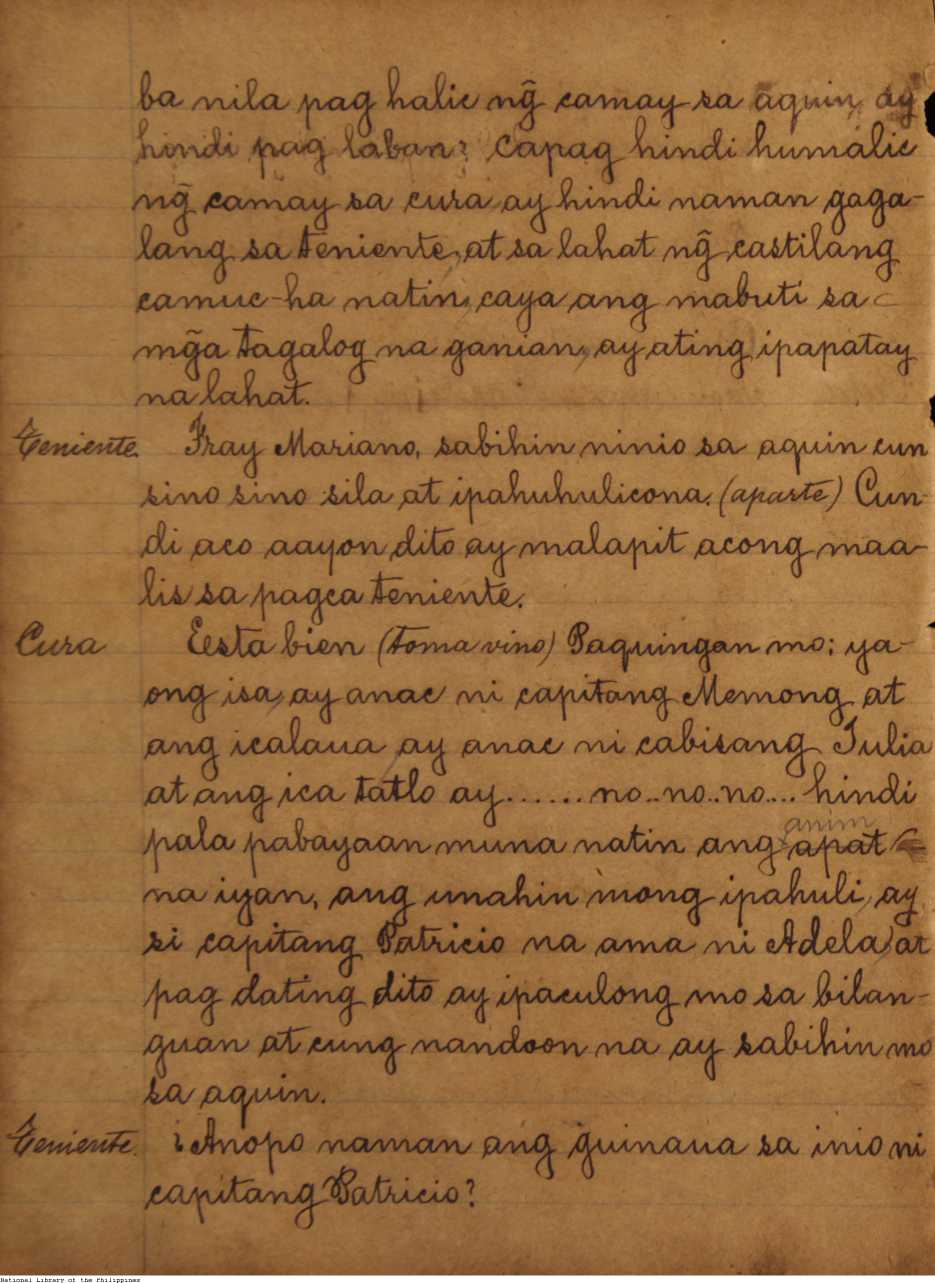 ba nila pag halic ng̃ camay sa aquin, ay
hindi pag laban? Capag hindi humálic
ng̃ camay sa cura ay hindi naman gaga-
lang sa teniente, at sa lahat ng̃ castilang
camuc-ha natin, caya ang mabuti sa
mg̃a tagalog na ganian, ay ating ipapatay
na lahat.
Teniente. Fray Mariano, sabihin ninio sa aquin cun
sino sino sila at ipahuhulicona. (aparte) Cun-
di aco aayon dito ay malapit acong maa-
lis sa pagca teniente.
Cura Eesta bien (toma vino) Paquingan mo; ya-
ong isa, ay anac ni capitang Memong at
ang icalaua ay anac ni cabisang Julia
at ang ica tatlo ay....... no.. no.. no.... hindi
anim
pala pabayaan muna natin ang apat
na iyan, ang unahin mong ipahuli, ay
si capitang Patricio na ama ni Adela, at
pag dating dito ay ipaculong mo sa bilan-
guan at cung nandoon na ay sabihin mo
sa aquin.
Teniente. ¿Anopo naman ang guinaua sa inio ni
capitang Patricio?
National Library of the Philippines